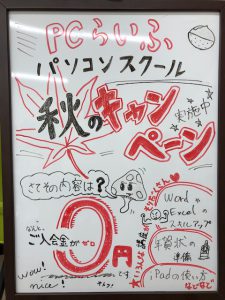 PCらいふ
パソコンスクール
秋のキャン
ペーン
実施中
さてその内容は?
なんと、
ご入会金がゼロ
0円
です。
wow!
nice!
Word
Excel
スキルアップ
年賀状の
準備
iPadの使い方
などなど